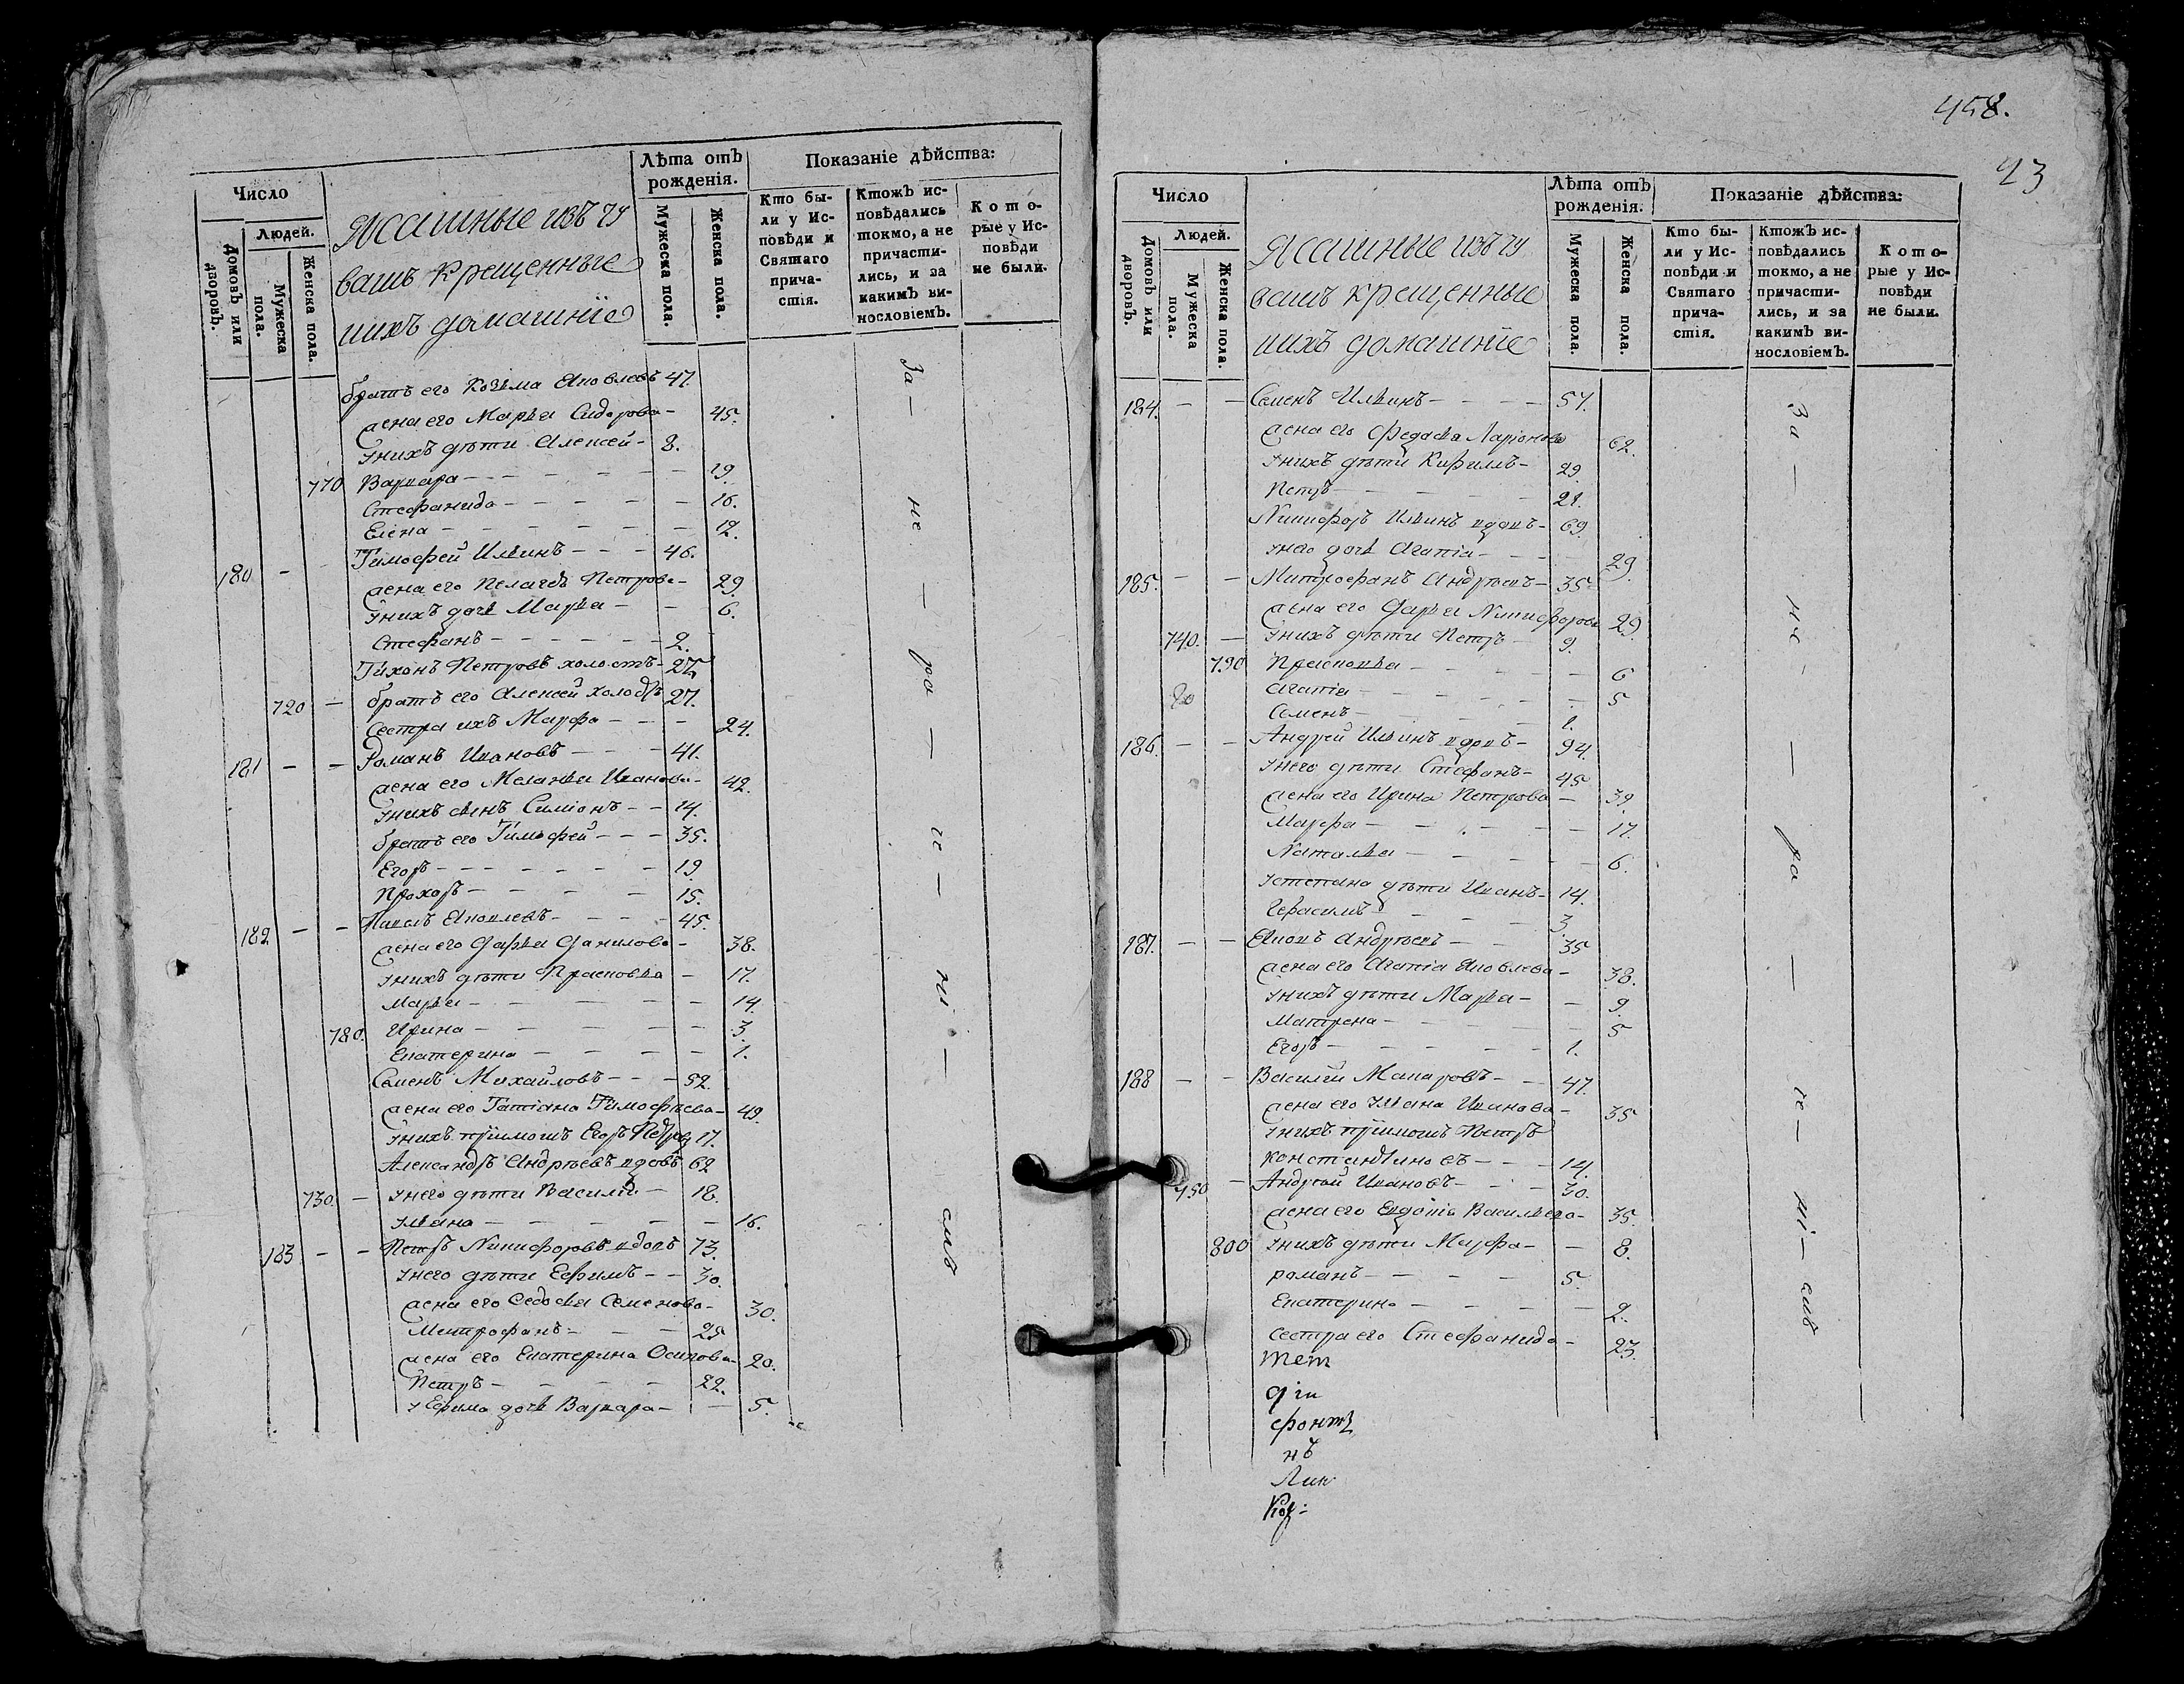 Число
Людей.
Домовъ или дворовъ.
Мужеска пола.
Женска пола.
Ясашные изъ чу
вашъ крещенные
ихъ домашніе
Лѣта отъ рожденія.
Мужеска пола.
Женска пола.
Показаніе дѣйства:
Кто бы-
ли у Ис-
повѣди и
Святаго
прича-
стія.
Ктожъ ис-
повѣдались
токмо, а не
причасти-
лись, и за
какимъ ви-
нословіемъ.
Кото-
рые у Ис-
повѣди
не были.
братъ его Козьма Яковлевъ 47.
жена его Марья Сидорова - 45.
у нихъ дѣти Алексей - 8.
770 Варвара - 19.
Стефанида - 16.
Елена - 12.
180 - Тимофей Ильинъ - 46.
жена его Пелагея Петрова - 29.
у нихъ дочь Марья - 6.
Стефанъ - 2.
Тихонъ Петровъ холостъ - 27.
720 - братъ его Алексей холостъ 27.
сестра ихъ Марфа - 24.
181 - - Романъ Ивановъ - 41.
жена его Меланья Иванова - 42.
у нихъ сынъ Симіонъ - 14.
братъ его Тимофей - 35.
Егоръ - 19.
Прохоръ - 15.
182 - - Павелъ Яковлевъ - 45.
жена его Дарья Данилова - 38.
у нихъ дѣти Прасковья - 17.
Марья - 14.
780. Ирина - 3.
Екатерина - 1.
Семенъ Михайловъ - 52.
жена его Татіана Тимофѣева - 49.
у нихъ пріимошъ Егоръ Петровъ 17.
Александръ Андрѣевъ вдовъ 62
730. - у него дѣти Василій - 18.
Ульяна - 16.
183 - - Петръ Никифоровъ вдовъ 73.
у него дѣти Ефимъ - 30.
жена его Федосья Семенова - 30.
Митрофанъ - 25
жена его Екатерина Осипова - 20.
Петръ - 22.
у Ефима дочь Варвара - 5.
За - не - ра - че - ні - емъ
458.
93
Число
Людей.
Домовъ или дворовъ.
Мужеска пола.
Женска пола.
Ясашные изъ чу
вашъ крещенные
ихъ домашніе
Лѣта отъ рожденія.
Мужеска пола.
Женска пола.
Показаніе дѣйства:
Кто бы-
ли у Ис-
повѣди и
Святаго
прича-
стія.
Ктожъ ис-
повѣдались
токмо, а не
причасти-
лись, и за
какимъ ви-
нословіемъ.
Кото-
рые у Ис-
повѣди
не были.
184. - - Семенъ Ильинъ - 57.
жена его Федосья Ларіонова 62.
у нихъ дѣти Кирилъ - 29.
Петръ - 21.
Никифоръ Ильинъ вдовъ - 69.
у него дочь Агапіа - 29.
185. - - Митрофанъ Андрѣевъ - 35
жена его Дарья Никифорова 29.
740. - у нихъ дѣти Петръ - 9.
790 Прасковья - 6
Агапіа - 5
Семенъ - 1.
186. - - Андрей Ильинъ вдовъ - 94.
у него дѣти Стефанъ - 45
жена его Ирина Петрова - 39.
Марфа - 17.
Наталья - 6.
у степана дѣти Иванъ - 14.
Герасимъ - 3.
187. - - Яковъ Андрѣевъ - 35
жена его Агапіа Яковлева - 38.
у нихъ дѣти Марья - 9.
Матрена - 5
Егоръ - 1.
188 - - Василій Макаровъ - 47.
жена его Ульяна Иванова - 35
у нихъ пріимошъ Петръ
Константиновъ - 14.
750 - Андрей Ивановъ - 30.
жена его Евдокіа Васильева - 35.
800 у нихъ дѣти Марфа - 8.
романъ - 5.
Екатерина - 2.
сестра его Стефанида - 23.
За - не - ра - че - ні - емъ